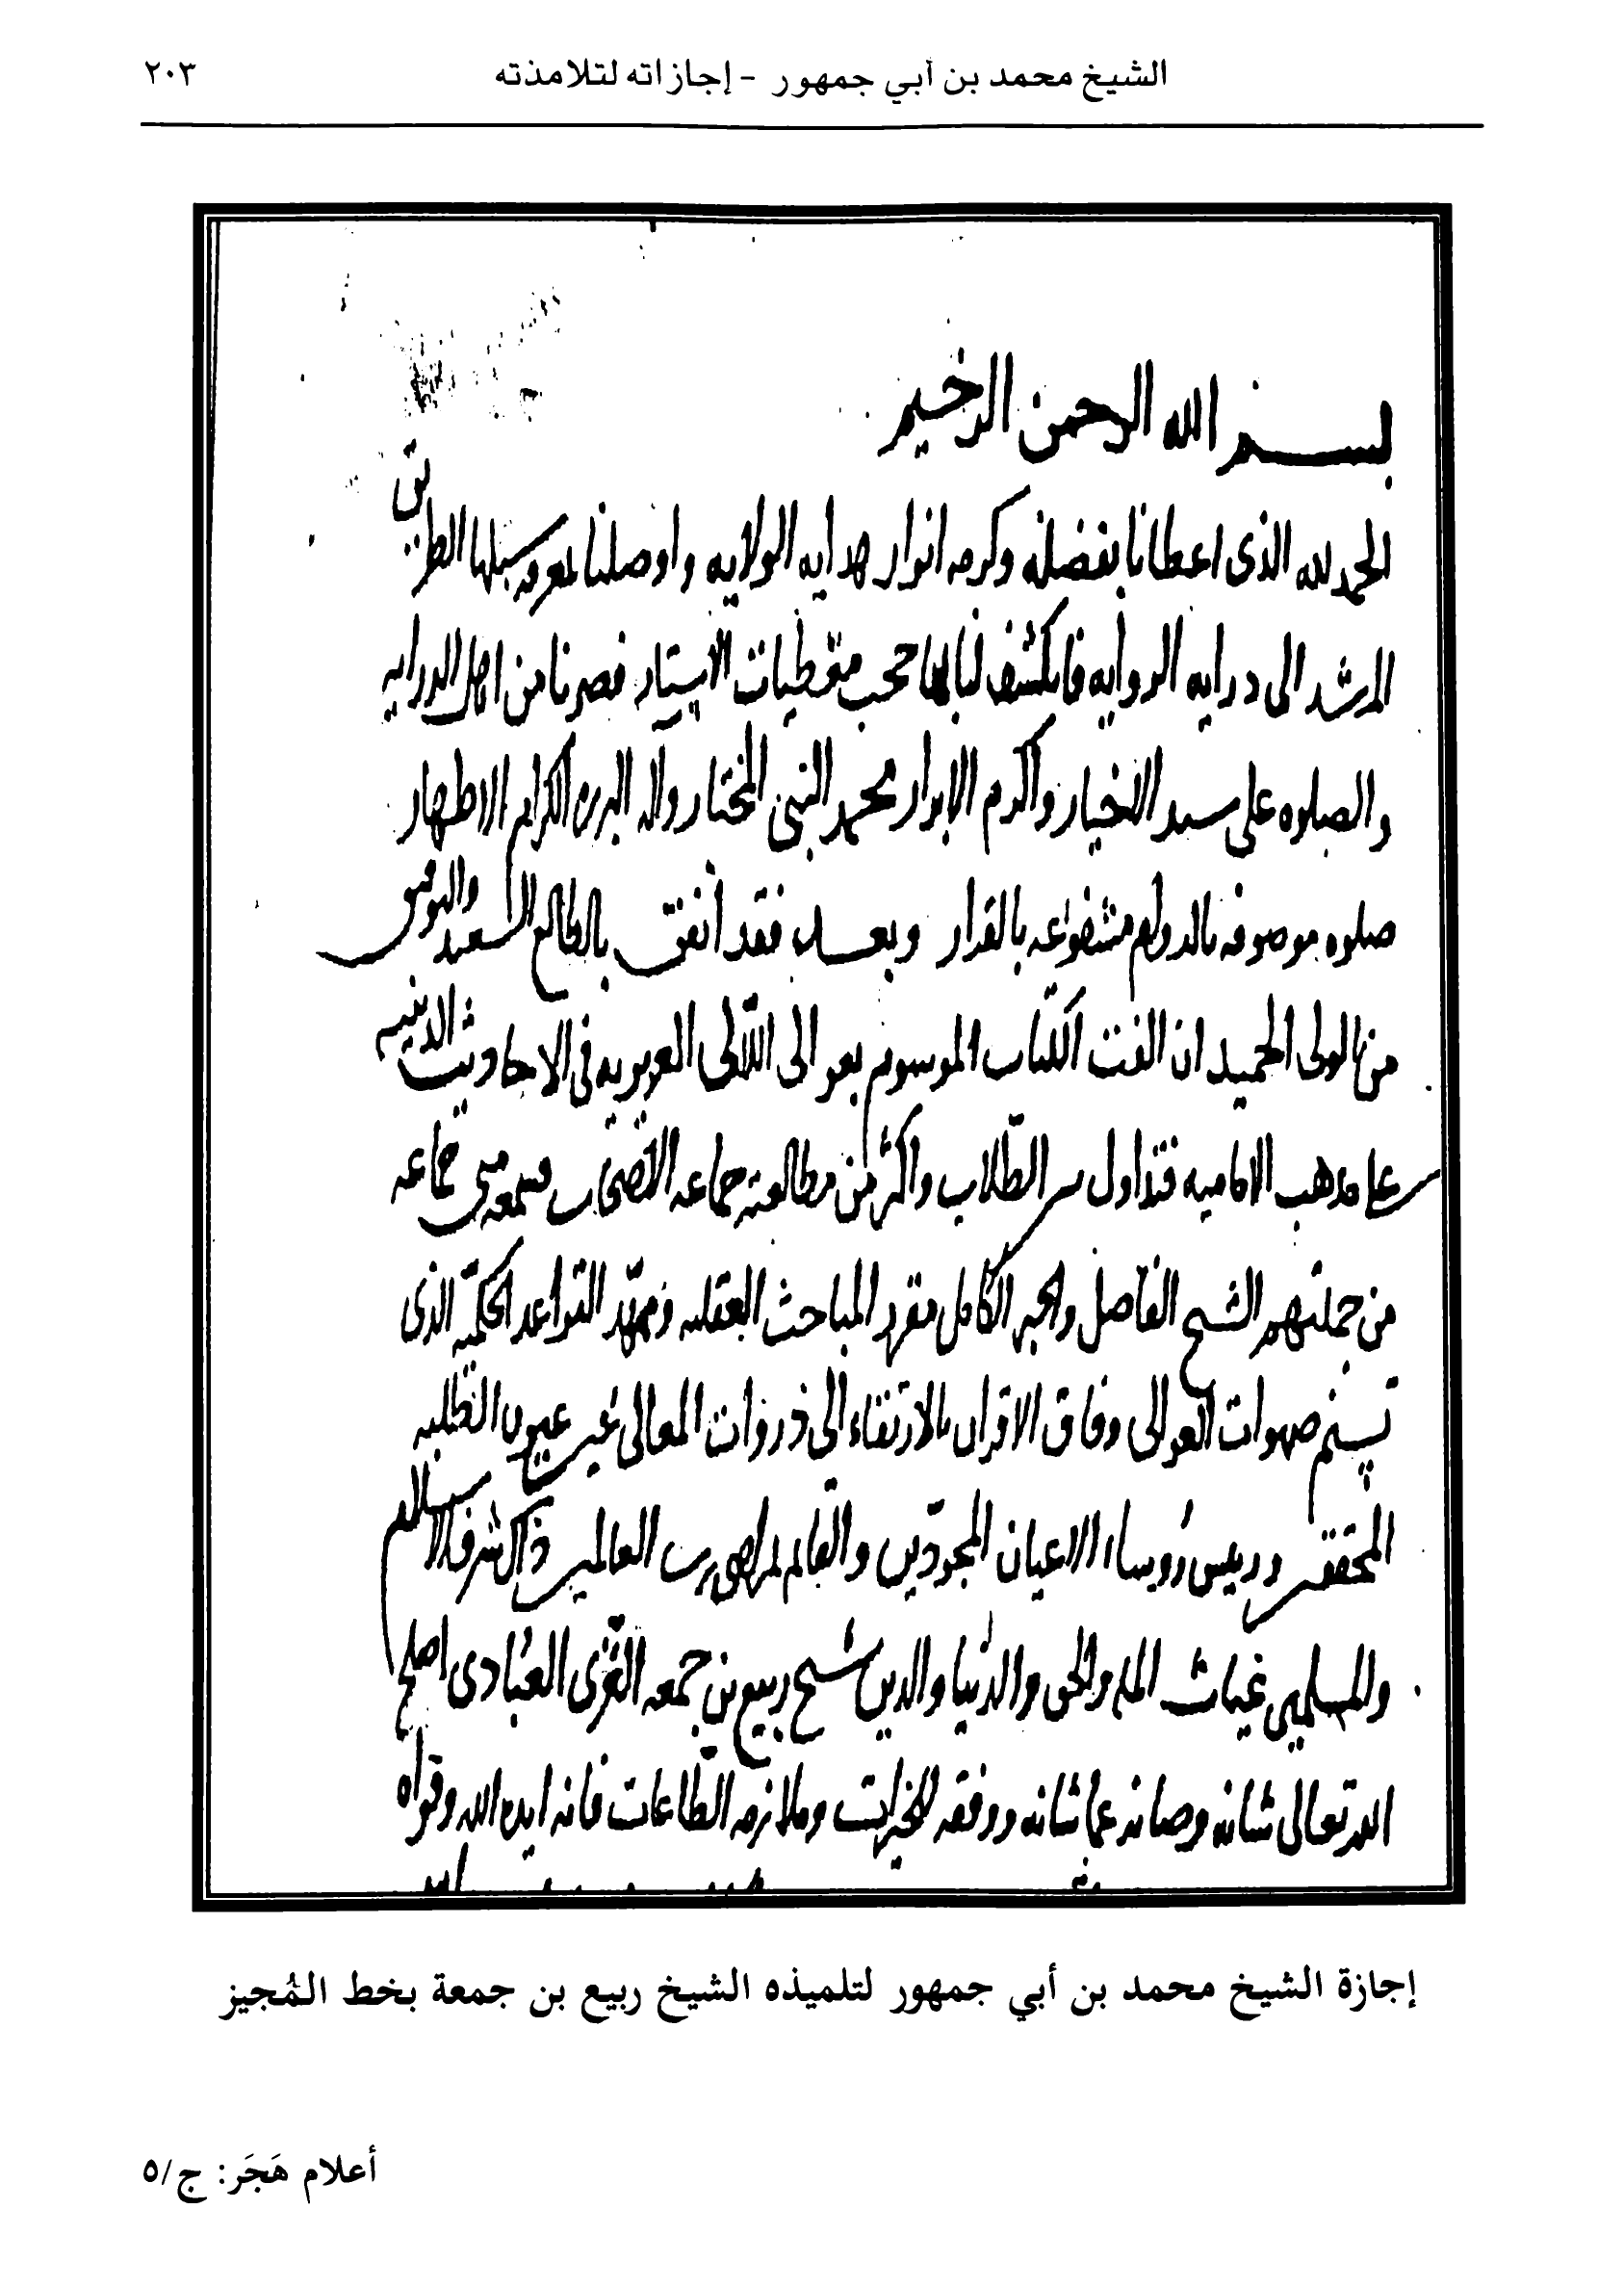 الشيخ محمد بن أبي جمهور - إجازاته لتلامذته ٢٠٣
بسم الله الرحمن الرحيم
الحمد لله الذى اعطانا بفضله وكرمه انوار هدايه الولايه واوصلنا لمعرفه سبلها الطريق
المرشد الى درايه الروايه فانكشف لنا بها حجب مغطيات الاستار فصرنا من اهل الدرايه
والصلوه على سيد الاخيار واكرم الابرار محمد النبى المختار واله البرره الكرام الاطهار
صلوه موصوفه بالدوام مشفوعه بالقرار وبعد فقد اتفق بالطالع السعيد والتوفيق
من المولى الحميد ان الفت الكتاب الموسوم بعوالى اللآلى العزيزيه فى الاحاديث الدينيه
على مذهب الاماميه فتداول بين الطلاب واكثر من مطالعته جماعه الاصحاب فسمعه منى جماعه
من جملتهم الشيخ الفاضل والحبر الكامل مقرر المباحث العقليه وممهد القواعد الحكميه الذى
تسنم صهوات العوالى وفاق الاقران بالارتقاء الى ذروات المعالى عين عيون الطلبه
المحققين ورييس رؤساء الاعيان المجودين والقايم بمراضى رب العالمين ذاك شرف الاسلام
والمسلمين غياث المله والحق والدنيا والدين شيخ ربيع بن جمعه الغزى العبادى اصلح
الله تعالى شانه وصانه عما شانه ووفقه للخيرات وملازمه الطاعات فانه ايده الله وقواه
إجازة الشيخ محمد بن أبي جمهور لتلميذه الشيخ ربيع بن جمعة بخط المُجيز
أعلام هَجَر: ج/٥